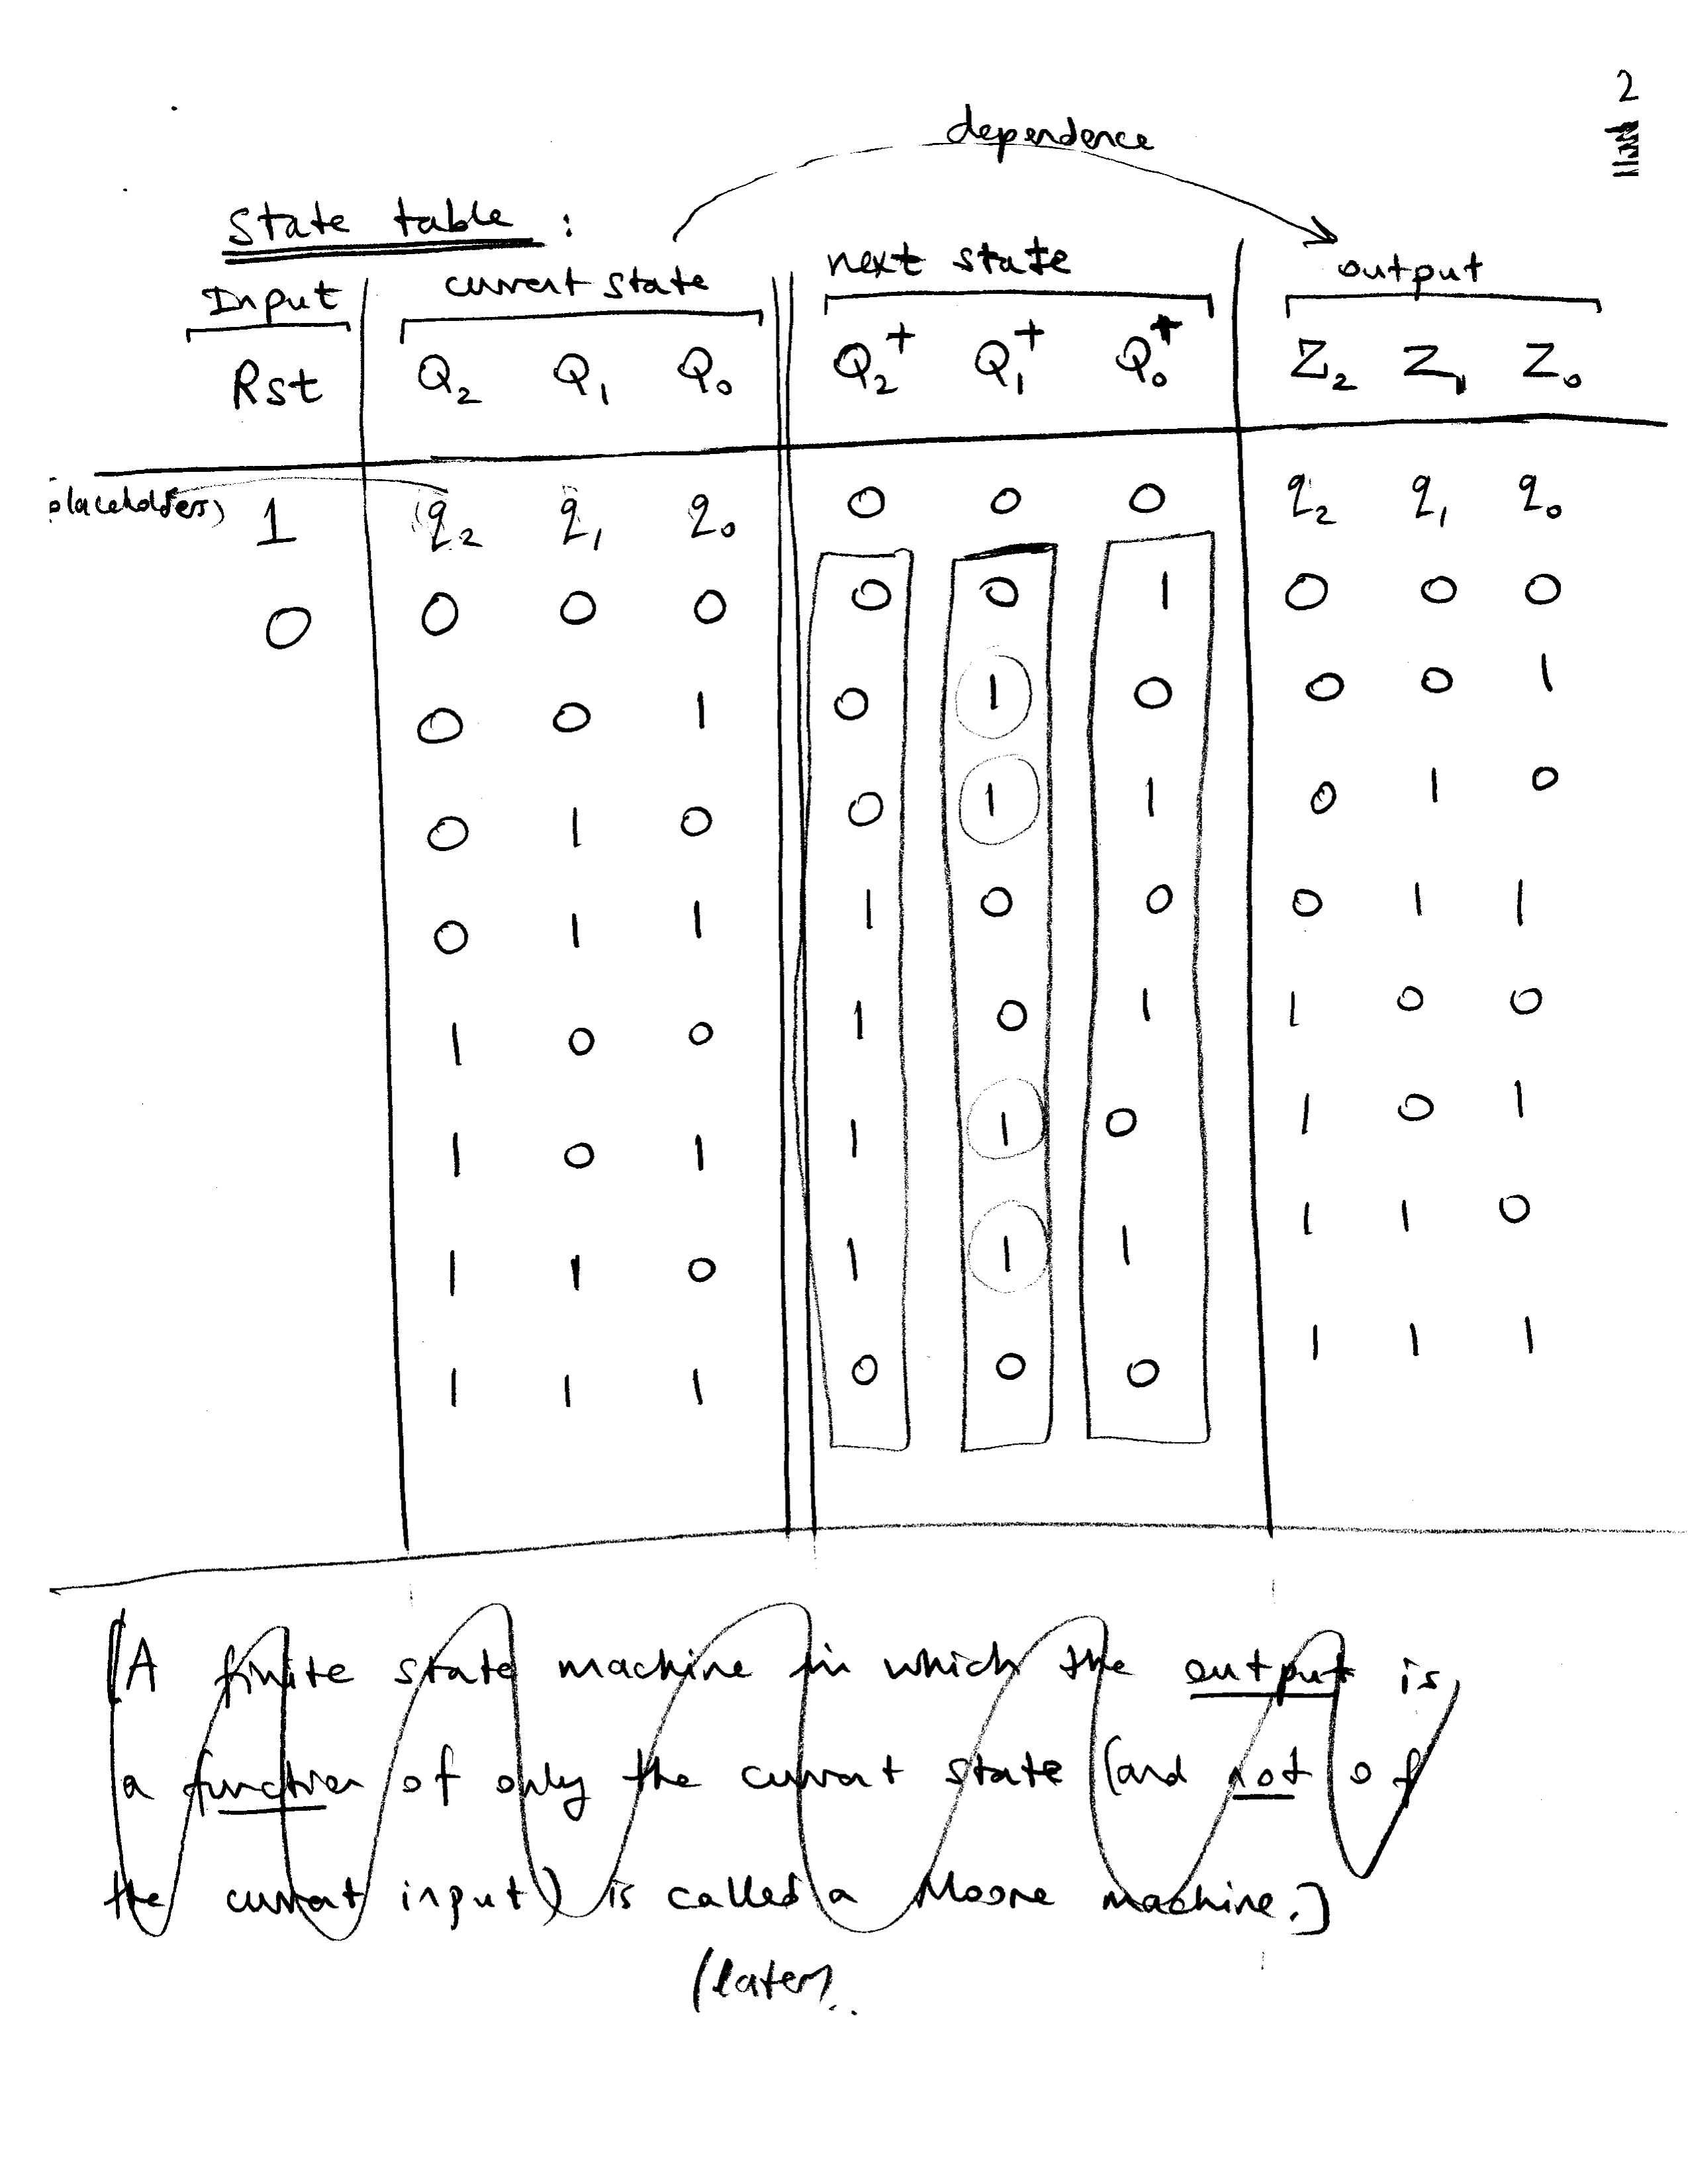 2
dependence
State table :
Input current state next state output
Rst Q₂ Q₁ Q₀ Q₂⁺ Q₁⁺ Q₀⁺ Z₂ Z₁ Z₀
placeholders) 1 (q₂ q₁ q₀ 0 0 0 q₂ q₁ q₀
0 0 0 0 0 0 1 0 0 0
0 0 1 0 1 0 0 0 1
0 1 0 0 1 1 0 1 0
0 1 1 1 0 0 0 1 1
1 0 0 1 0 1 1 0 0
1 0 1 1 1 0 1 0 1
1 1 0 1 1 1 1 1 0
1 1 1 0 0 0 1 1 1
[A finite state machine in which the output is
a function of only the current state (and not of
the current input) is called a Moore machine.]
(later)..